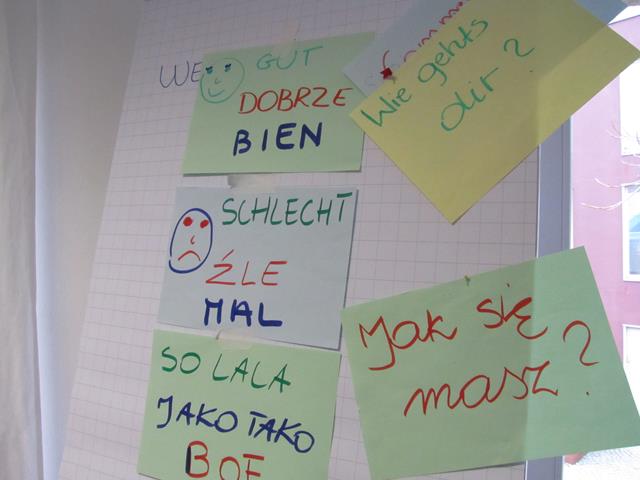 WE
GUT
DOBRZE
BIEN
Wie gehts
dir?
SCHLECHT
ŹLE
MAL
SO LALA
JAKO TAKO
BOF
Jak się
masz?